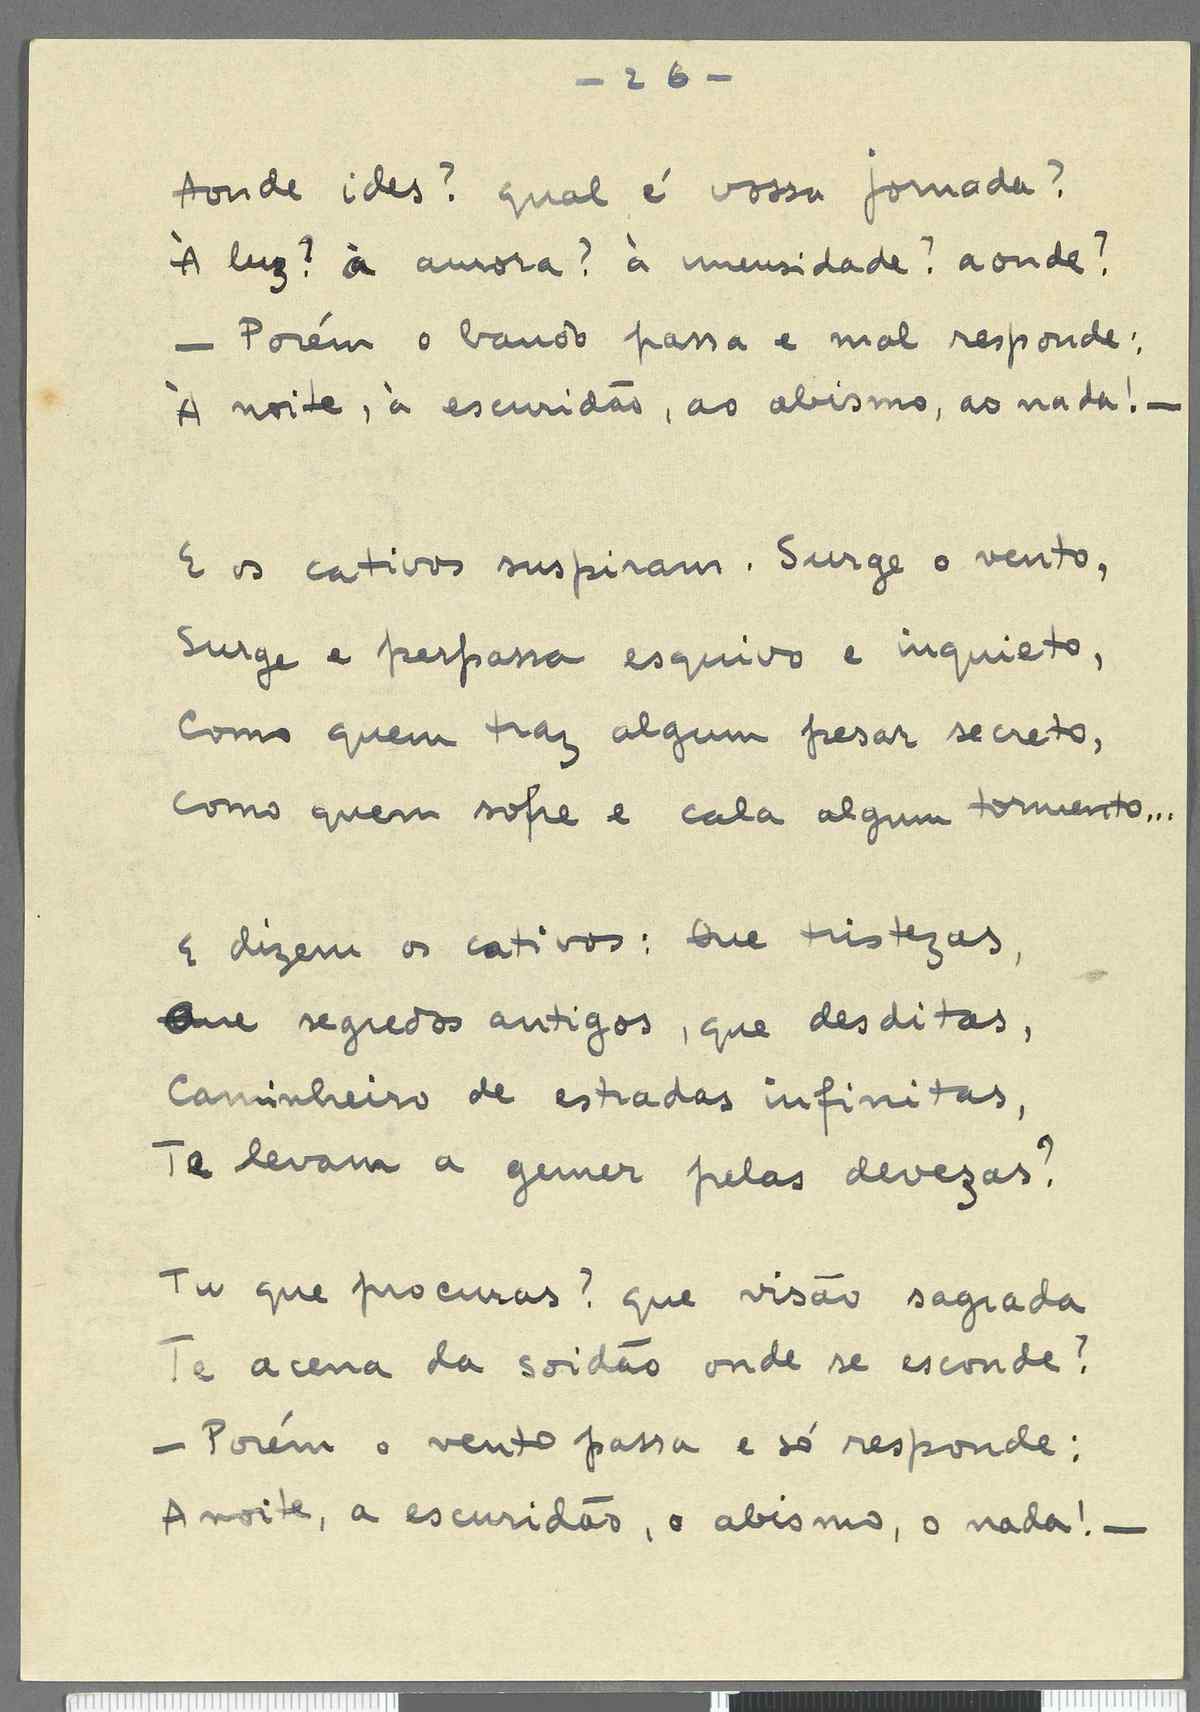 - 26 -
Aonde ides? qual é vossa jornada?
À luz? à aurora? à imensidade? aonde?
— Porém o bando passa e mal responde:
À noite, à escuridão, ao abismo, ao nada! —
E os cativos suspiram. Surge o vento,
Surge e perpassa esquivo e inquieto,
Como quem traz algum pesar secreto,
Como quem sofre e cala algum tormento...
E dizem os cativos: Que tristezas,
Que segredos antigos, que desditas,
Caminheiro de estradas infinitas,
Te levam a gemer pelas devezas?
Tu que procuras? que visão sagrada
Te acena da soidão onde se esconde?
— Porém o vento passa e só responde:
A noite, a escuridão, o abismo, o nada! —